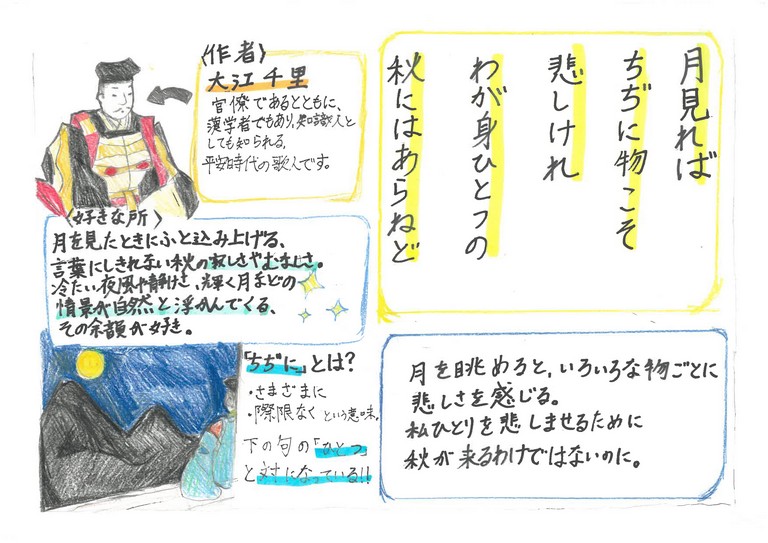 月見れば
ちぢに物こそ
悲しけれ
わが身ひとつの
秋にはあらねど
〈作者〉
大江千里
官僚であるとともに、
漢学者でもあり、知識人と
しても知られる、
平安時代の歌人です。
〈好きな所〉
月を見たときにふと込み上げる、
言葉にしきれない秋の寂しさやむなしさ。
冷たい夜風や静けさ、輝く月などの
情景が自然と浮かんでくる、
その余韻が好き。
「ちぢに」とは?
・さまざまに
・際限なく という意味。
下の句の「ひとつ」
と対になっている!!
月を眺めると、いろいろな物ごとに
悲しさを感じる。
私ひとりを悲しませるために
秋が来るわけではないのに。